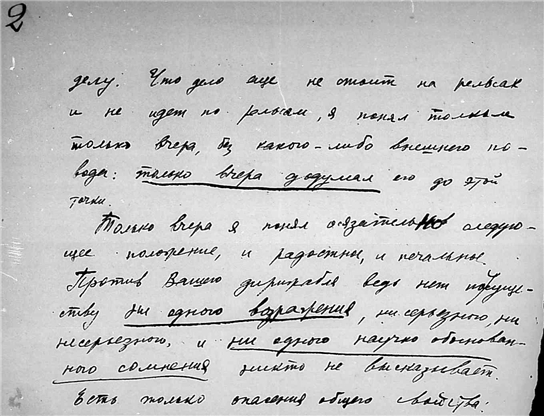 2
делу. Что дело еще не стоит на рельсах
и не идет по рельсам, я понял только
только вчера, без какого-либо внешнего по-
вода: только вчера додумал его до этой
точки.
Только вчера я понял осязательно следую-
щее положение, и радостное, и печальное.
Против Вашего дирижабля ведь нет по существу
ни одного возражения, ни серьезного, ни
несерьезного, и ни одного научно обоснован-
ного сомнения никто не высказывает.
Есть только опасения общего свойства.